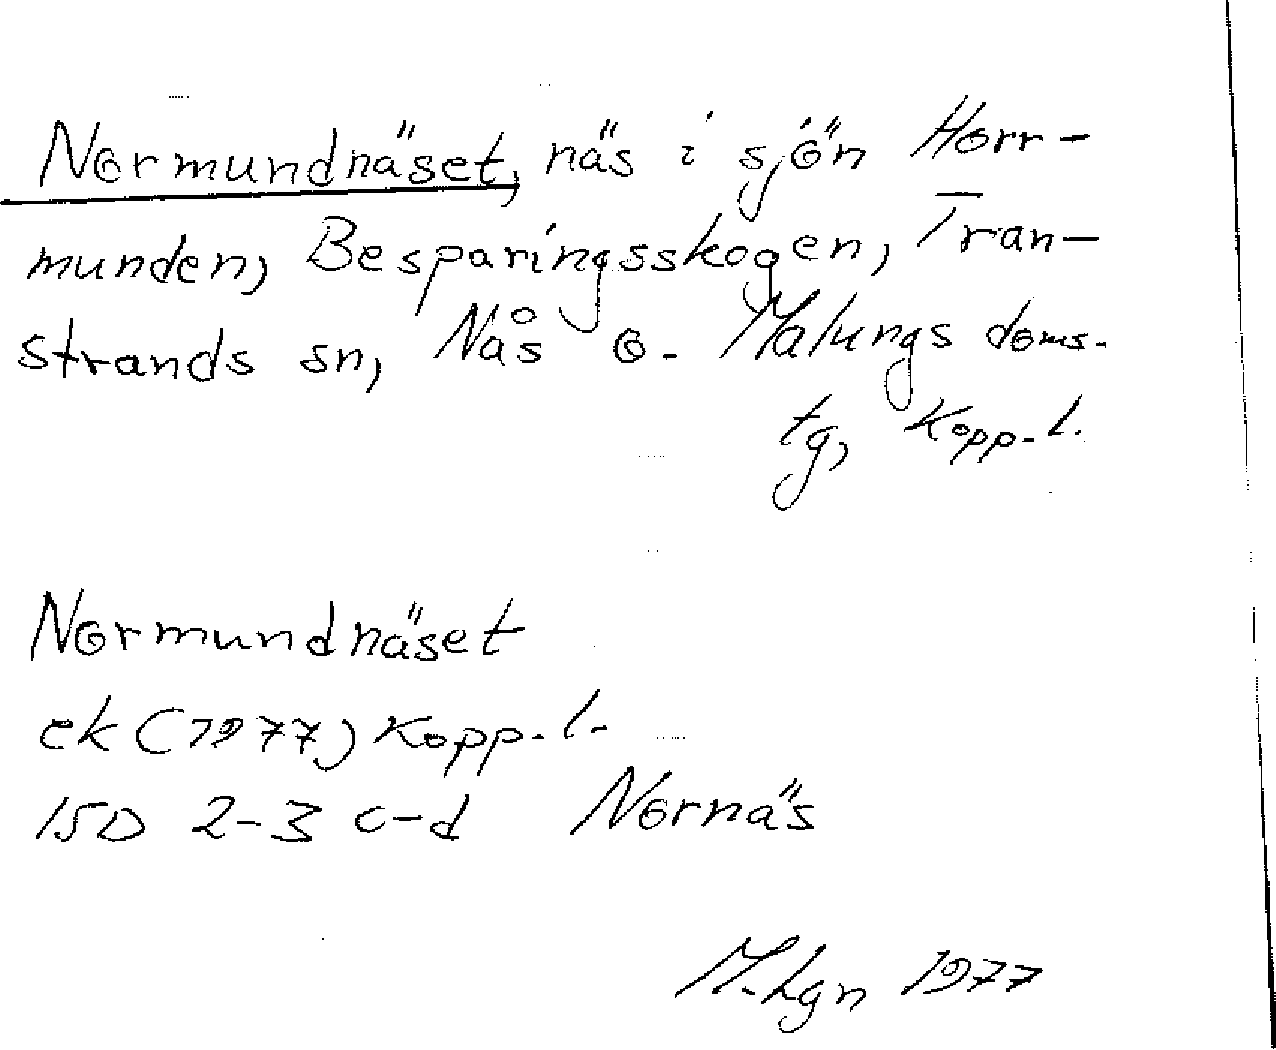 Normundnäset, näs i sjön Horr-
munden, Besparingsskogen, Tran-
strands sn, Nås o. Malungs doms.
tg, Kopp. l.
Normundnäset
ek (1977) Kopp. l.
15D 2-3 c-d Nornäs
M. Lgn 1977